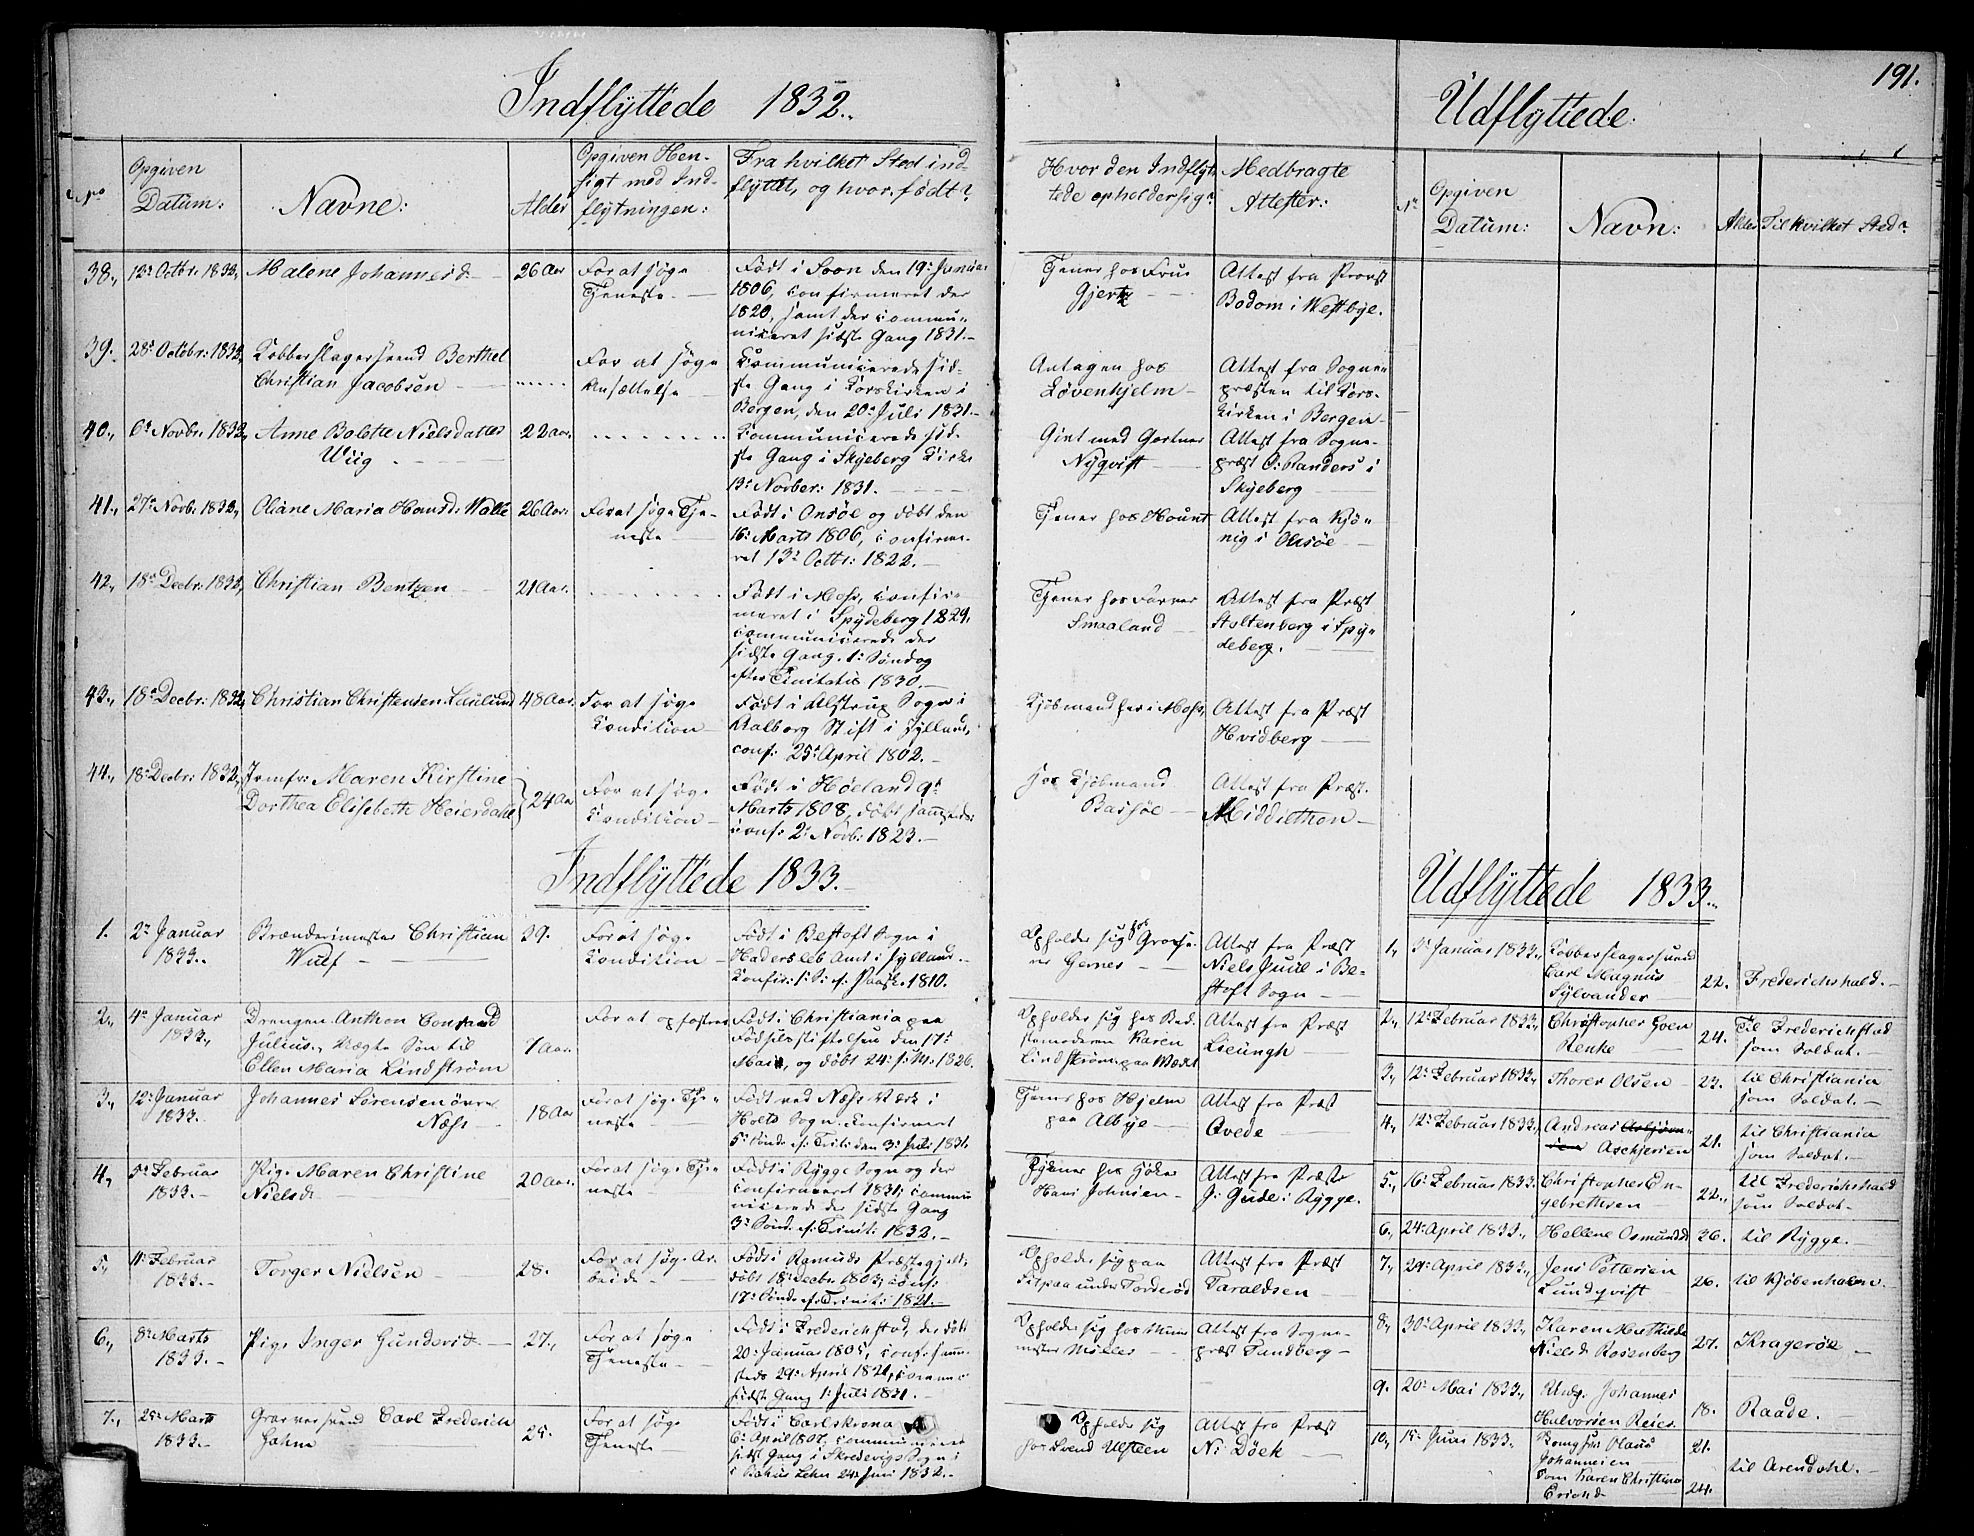 191.
Indflyttede 1832.
No
Opgiven
Datum:
Navne:
Alder
Opgiven Hen-
sigt med Ind-
flytningen:
Fra hvilket Sted ind-
flyttet, og hvor født?
Hvor den Indflyt
tede opholder sig?
Medbragte
Attester:
38.,
12te Octbr. 1832,
Malene Johannesd.
26 Aar
For at søge
Tjeneste.
Født i Soon den 19de Januar
1806, confirmeret der
1820, samt der commu-
niceret sidste Gang 1831.
Tjener hos Frue
Gjertz
Attest fra Provst
Bodom i Westbye.
39.
28de Octobr: 1832,
Kobberslagersvend Berthel
Christian Jacobsen
For at søge
Ansættelse
Communicerede sid-
ste Gang i Korskirken i
Bergen, den 20de Juli 1831.
Antagen hos
Løvenhjelm
Attest fra Sogne-
præsten til Kors-
kirken i Bergen
40.,
6te Novbr. 1832,
Anne Bolette Nielsdatter
Wiig
22 Aar.
Communicerede sid-
ste Gang i Skjeberg Kirke
13de Novber: 1831.
Gift med Gartner
Nyqvist
Attest fra Sogne-
præst O: Randers i
Skjeberg
41.,
27de Novb. 1832,
Oliane Maria Hansd. Walle
26 Aar.
For at søge Tje-
neste
Født i Onsøe og døbt den
16de Marts 1806, confirme-
ret 13de Octbr: 1822.
Tjener hos Hount
Attest fra
i Onsøe
42.,
18de Decbr: 1832,
Christian Bentzen
21 Aar.
Født i Moss, confir-
meret i Spydeberg 1829,
communicerede der
sidste Gang 1ste Søndag
efter Trinitatis 1830.
Tjener hos Farver
Smaaland
Attest fra Præst
Stoltenberg i Spy-
deberg.
43.,
18de Decbr: 1832,
Christian Christensen Laslund
48 Aar.
For at søge
Condition
Født i Alstrup Sogn i
Aalborg Stift i Jylland,
conf: 25de April 1802.
Kjøbmand her i Moss,
Attest fra Præst
Hvidberg
44.,
18de Decbr: 1832,
Jomfru Maren Kirstine
Dorthea Elisebeth Heierdahl
24 Aar
For at søge
Condition
Født i Høeland 9de
Marts 1808, døbt sammesteds
conf: 2de Novb: 1823.
hos Kjøbmand
Bassøe
Attest fra Præst
Middelthon
Indflyttede 1833.
1.
2den Januar
1833.
Brænderimester Christian
Wulf
39.
For at søge
Condition
Født i Bestoft Sogn i
Hadersleb Amt i Jylland.
Confir: 1ste S: ef: Paaske 1810.
Opholder sig hos
Gernes
Attest fra Præst
Niels Juul i Be-
stoft Sogn
2.,
4de Januar
1833.,
Drengen Anthon Conrad
Julius, uægte Søn til
Ellen Maria Lindstrøm
7 Aar.
For at opfostres
Født i Christiania paa
Fødselsstiftelsen den 17de
Mai, og døbt 24de s: M: 1826.
Opholder sig hos Bed-
stemoderen Karen
Lindstrøm paa Værket
Attest fra Præst
Lieungh
3.,
12te Januar
1833.
Johannes Sørensen øvre
Næss
18 Aar
For at søge Tje-
neste
Født ved Næss Værk i
Holts Sogn. Confirmeret
5te Sønd: ef: Trit: den 3de Juli 1831.
Tjener hos Hjelm
paa Albye
Attest fra Præst
Qvede
4.,
5te Februar
1833.
Pige Maren Christine
Nielsd.
20 Aar.
For at søge Tje-
neste
Født i Rygge Sogn og der
confirmeret 1831, commu-
nicerede der sidste Gang
3de Sønd: ef: Trinit: 1832.
Tjener hos Høker
Hans Johnsen
Attest fra Præst
J: Gude i Rygge.
5.,
11te Februar
1833.
Torger Nielsen
28.
For at søge Ar-
beide
Født i Ramnæs Præstegjeld,
døbt 18de Decbr 1803, conf:
17de Sønd: ef: Trinit: 1821.
Opholder sig paa
Fitpaa under Torderød
Attest fra Præst
Taraldsen
6.,
8de Marts
1833.
Pige Inger Gundersd.
27.,
For at søge
Tjeneste
Født i Frederichstad, der døbt
20de Januar 1805, conf: samme-
steds 29de April 1821, comm:
sidste Gang 1ste Juli 1831.
Opholder sig hos Muur-
mester Møller
Attest fra Sogne-
præst Tandberg
7.,
25de Marts
1833.
Garversvend Carl Frederich
Hahne
25.
For at søge
Tjeneste
Født i Carlskrona
6te April 1807, communicerede
sidst Gang i Skredevigs Sogn i
i Bahus Lehn 24de Juni 1832.
Opholder sig
hos Svend Ulsteen
Attest fra Præst
N: Döek
Udflyttede.
No
Opgiven
Datum:
Navn:
Alder
Til hvilket Sted?
Udflyttede 1833.
1.,
3de Januar 1833.,
Kobberslagersvend
Carl Magnus
Sylvander
22.
Frederichshald.
2.,
12te Februar 1833.,
Christopher Goen
Renke
24.
Til Frederichstad
som Soldat.
3.,
12te Februar 1833.,
Thorer Olsen
23.
til Christiania
som Soldat.
4.,
12te Februar 1833.,
Andreas
Aschjersen
21.
til Christiania
som Soldat.
5.,
16de Februar 1833.
Christopher En-
gebrethsen
22.,
til Frederichshald
som Soldat.
6.,
24de April 1833.,
Hellene Osmundsd
36.
til Rygge.
7.,
24de April 1833.,
Jens Pettersen
Lundqvist
26.
til Kjøbenhavn.
8.,
30te April 1833.,
Karen Mathilde
Nielsd Rosenberg
27.
Kragerøe
9.
20de Mai 1833.,
Ung: Johannes
Halvorsen Reier
18.
Raade.
10.,
15de Juni 1833.
Olaus
Johannesen
Karen Christine
Ericsd
21.
24.
til Arendahl.